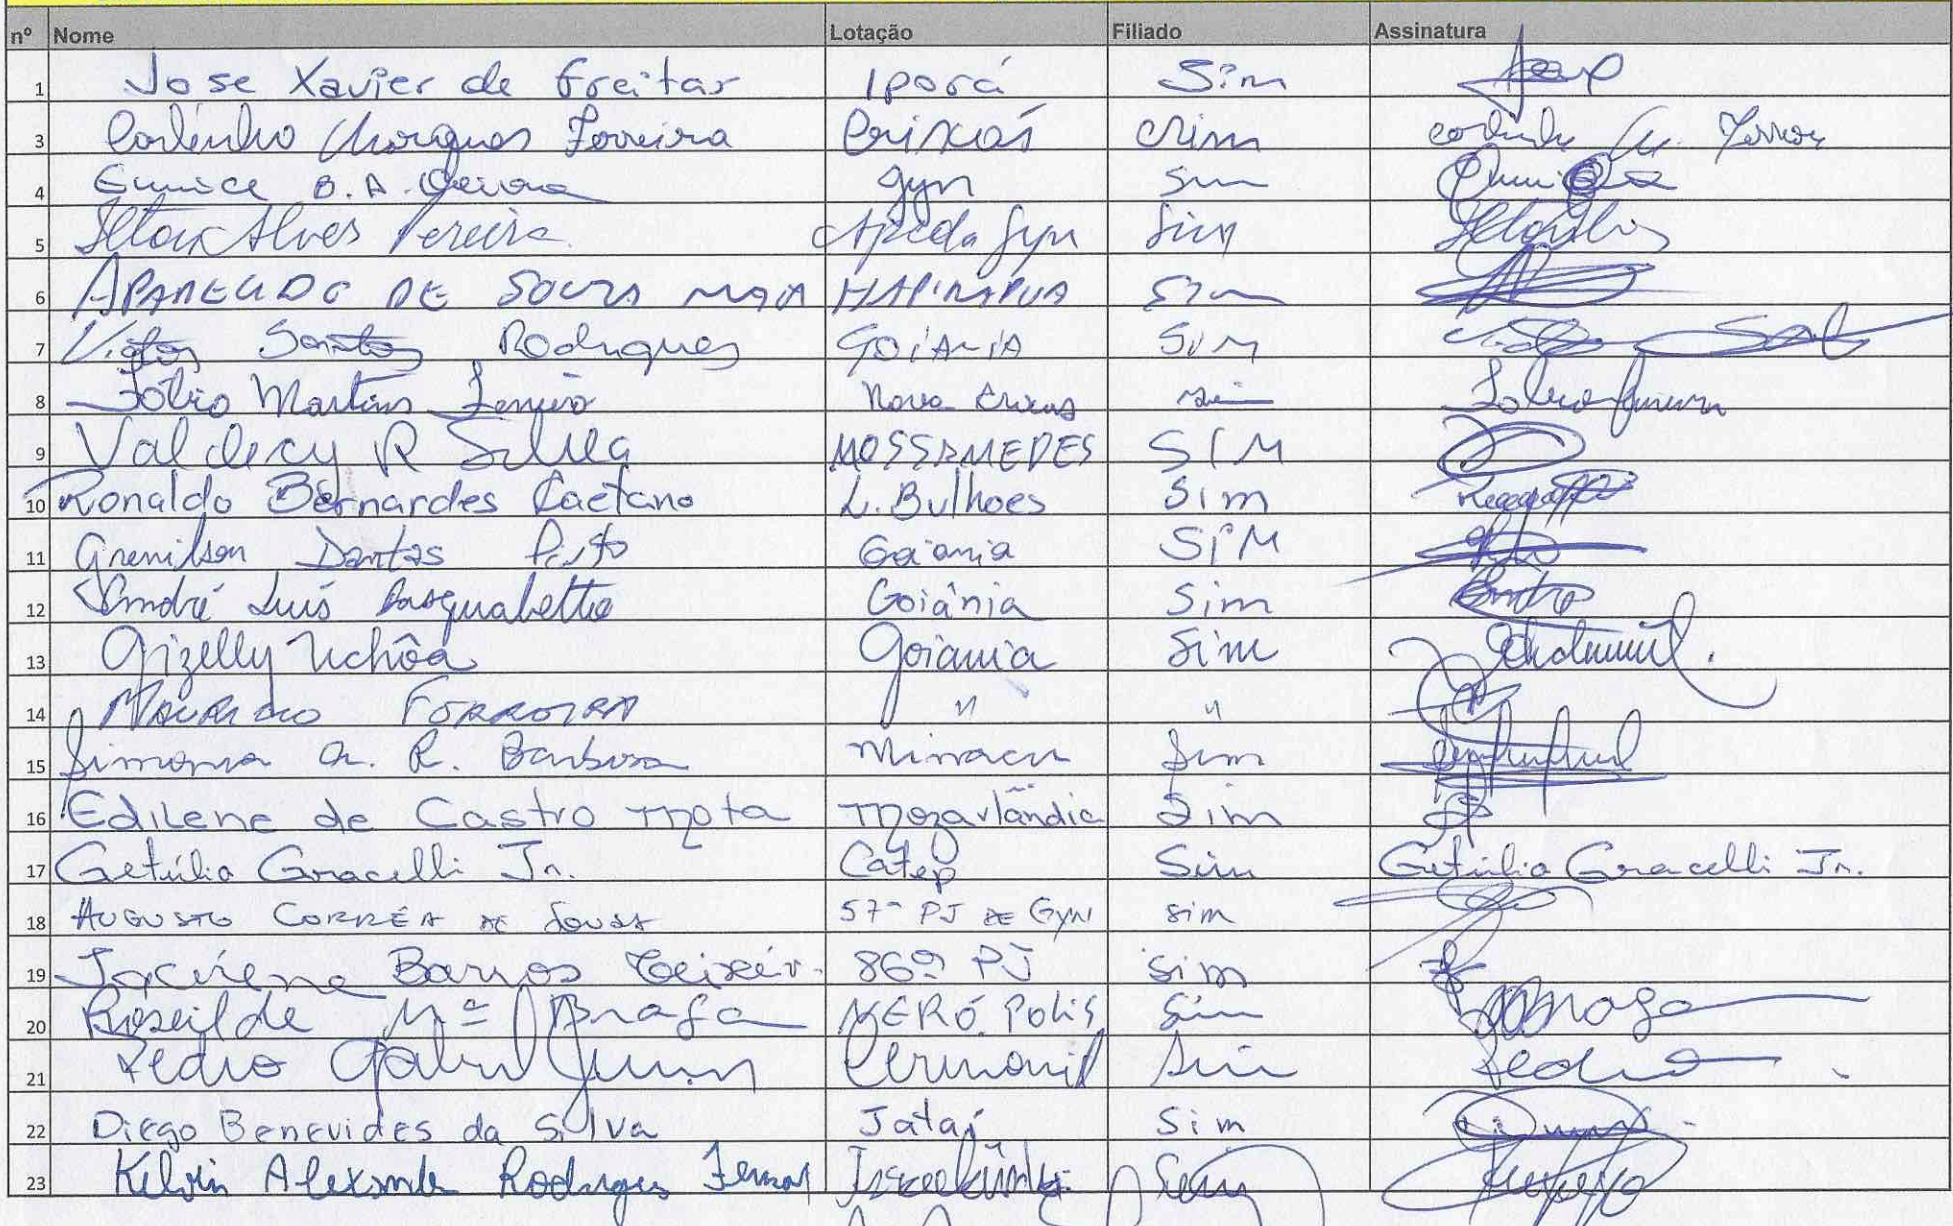 nº Nome Lotação Filiado Assinatura
1 Jose Xavier de Freitas Iporá Sim
3 Carlinho Marques Ferreira Crixás Sim
4 Eunice B. A. gyn Sim
5 Alves Pereira Apda Gyn Sim
6 APARECIDO DE SOUZA MAIA ITAPIRAPUA Sim
7 Santos Rodrigues GOIANIA SIM
8 Martins Nova Crixas Sim
9 Valdecy R Silva MOSSAMEDES SIM
10 Ronaldo Bernardes Caetano L. Bulhoes Sim
11 Grenilson Dantas Goiania SIM
12 André Luís Pasqualetto Goiânia Sim
13 Gizelly Uchôa Goiania Sim
14 MAURICIO FERREIRA " "
15 Simonia a. R. Barbosa Minacu Sim
16 Edilene de Castro Mota Mozarlândia Sim
17 Getúlio Gracelli Jr. Catep Sim Getúlio Gracelli Jr.
18 AUGUSTO CORRÊA DE SOUSA 57ª PJ DE GYN sim
19 Jacirene Barros 86ª PJ Sim
20 Roseilde Mª Braga NERÓPOLIS Sim
21 Pedro Sim Pedro
22 Diego Benevides da Silva Jataí Sim
23 Kelvin Alexandre Rodrigues Israelândia Sim